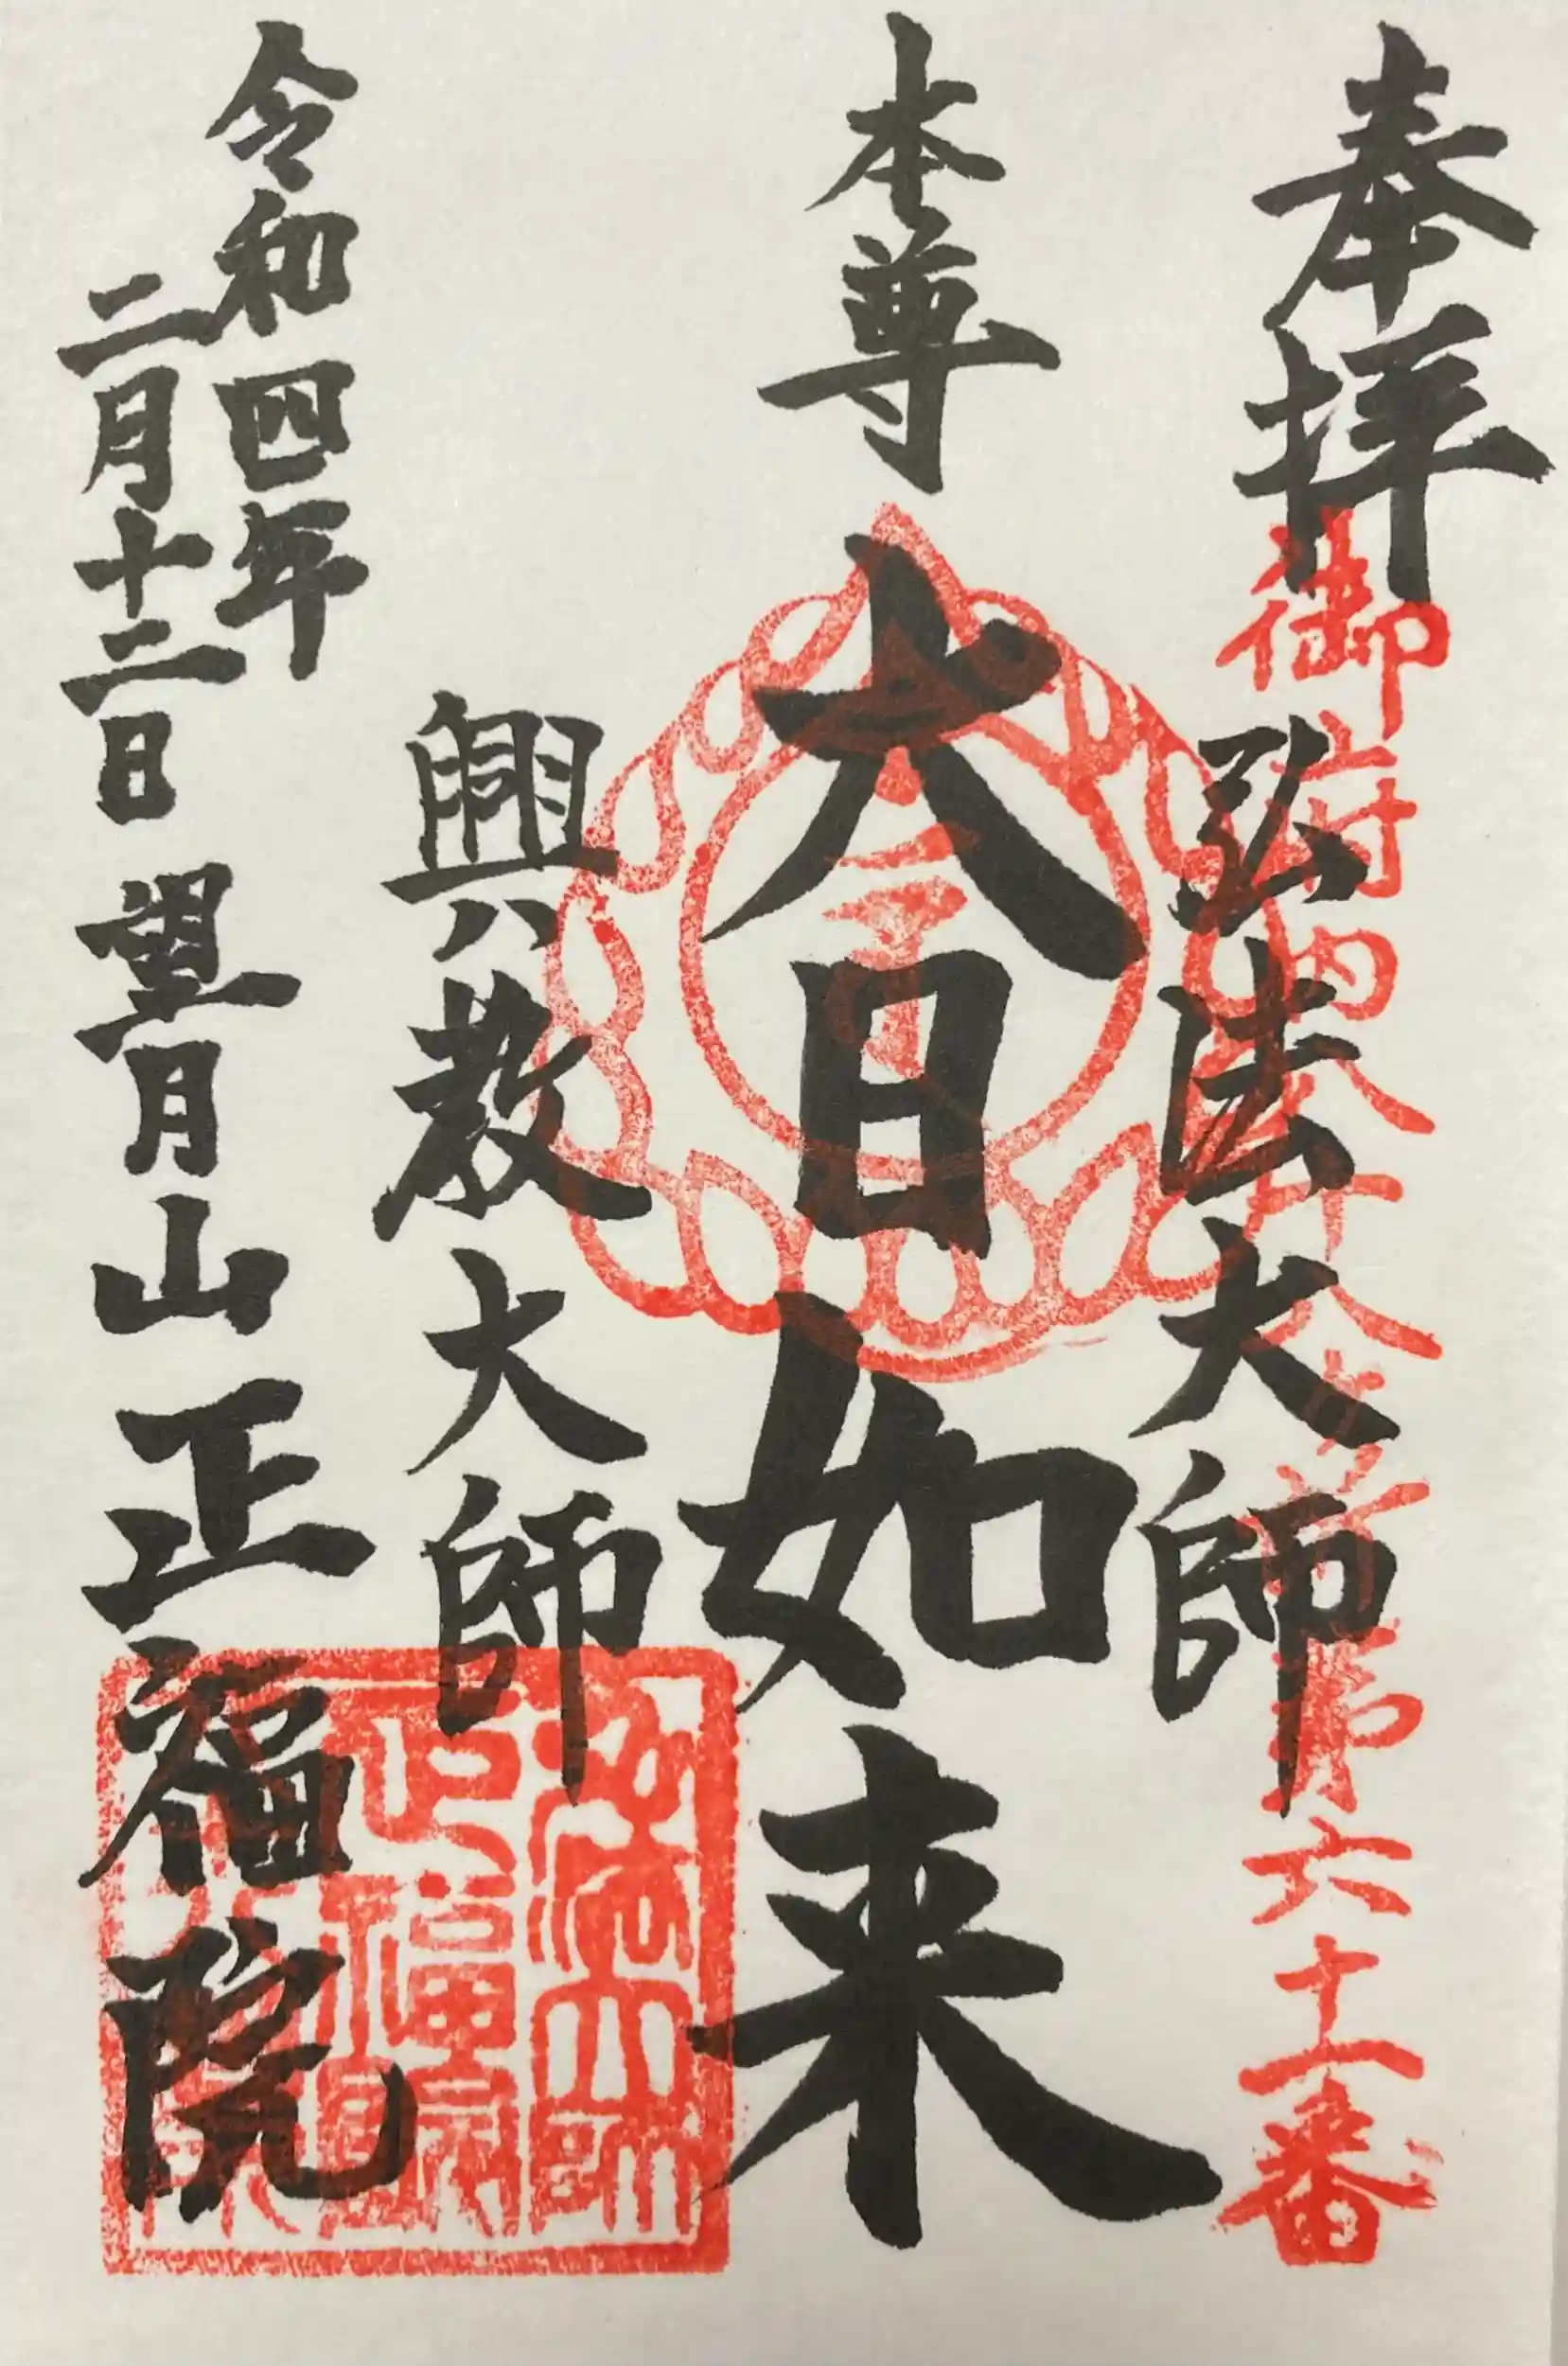 奉拝
御府内八十八ヶ所第六十一番
弘法大師
本尊
大日如来
興教大師
令和四年
二月十二日
望月山
正福院